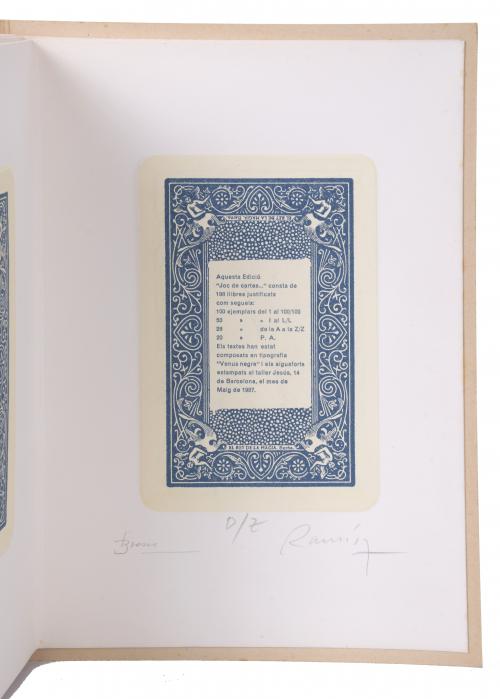 EL REY DE LA MAGIA, Barna.
Aquesta Edició
"Joc de cartes..." consta de
198 llibres justificats
com segueix:
100 exemplars del 1 al 100/100
50 » » I al L/L
28 » de la A a la Z/Z
20 » P. A.
Els textes han estat
composats en tipografia
"Venus negra" i els aiguaforts
estampats al taller Jesús, 14
de Barcelona, el mes de
Maig de 1987.
EL REY DE LA MAGIA, Barna.
D/Z